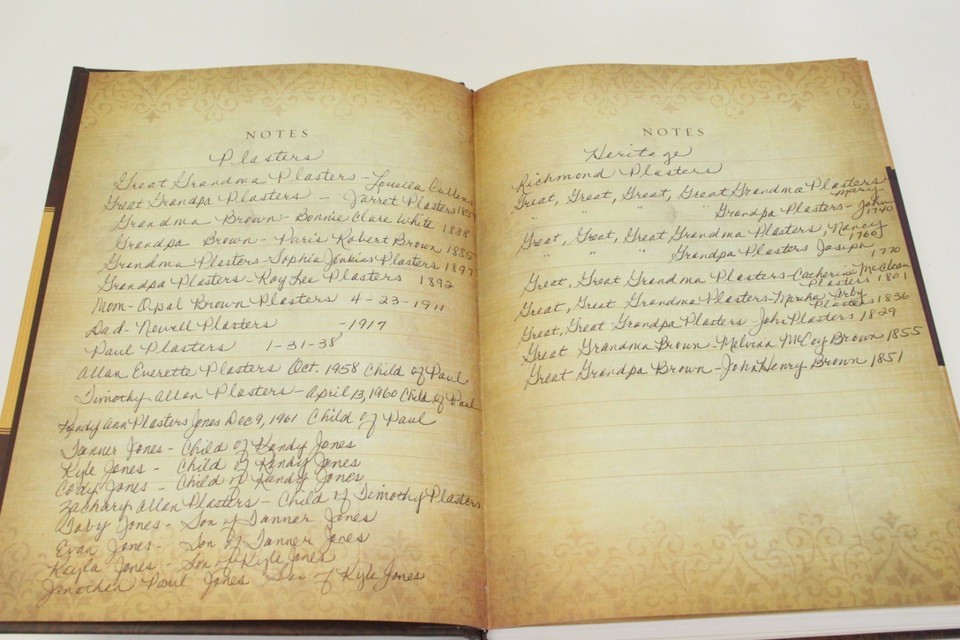 NOTES
Plasters
Great Grandma Plasters - Louella Cullens
Great Grandpa Plasters - Jarret Plasters 1857
Grandma Brown - Bonnie Clare White 1888
Grandpa Brown - Paris Robert Brown 1885
Grandma Plasters - Sophia Jenkins Plasters 1897
Grandpa Plasters - Roy Lee Plasters 1892
Mom - Opal Brown Plasters 4-23-1911
Dad - Newell Plasters - 1917
Paul Plasters 1-31-38
Allan Everette Plasters Oct. 1958 Child of Paul
Timothy Allan Plasters - April 13, 1960 Child of Paul
Kandy Ann Plasters Jones Dec 9, 1961 Child of Paul
Tanner Jones - Child of Kandy Jones
Kyle Jones - Child of Kandy Jones
Cody Jones - Child of Kandy Jones
Zachary Allan Plasters - Child of Timothy Plasters
Toby Jones - Son of Tanner Jones
Evan Jones - Son of Tanner Jones
Kayla Jones - Son of Kyle Jones
Jonathen Paul Jones Son of Kyle Jones
NOTES
Heritage
Richmond Plasters
Great, Great, Great, Great Grandma Plasters Mary
" " " " Grandpa Plasters - John 1740
Great, Great, Great Grandma Plasters, Nancy 1760
" " " Grandpa Plasters Joseph 1770
Great, Great Grandma Plasters - Catherine McClean Plasters 1801
Great, Great Grandma Plasters - Martha Irby Plasters 1836
Great, Great Grandpa Plasters - John Plasters 1829
Great Grandma Brown - Melvina McCoy Brown 1855
Great Grandpa Brown - John Henry Brown 1851